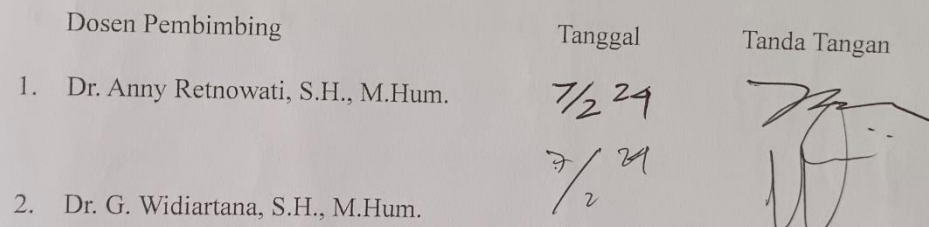 Dosen Pembimbing Tanggal Tanda Tangan
1. Dr. Anny Retnowati, S.H., M.Hum. 7/2 24
7/2 24
2. Dr. G. Widiartana, S.H., M.Hum.